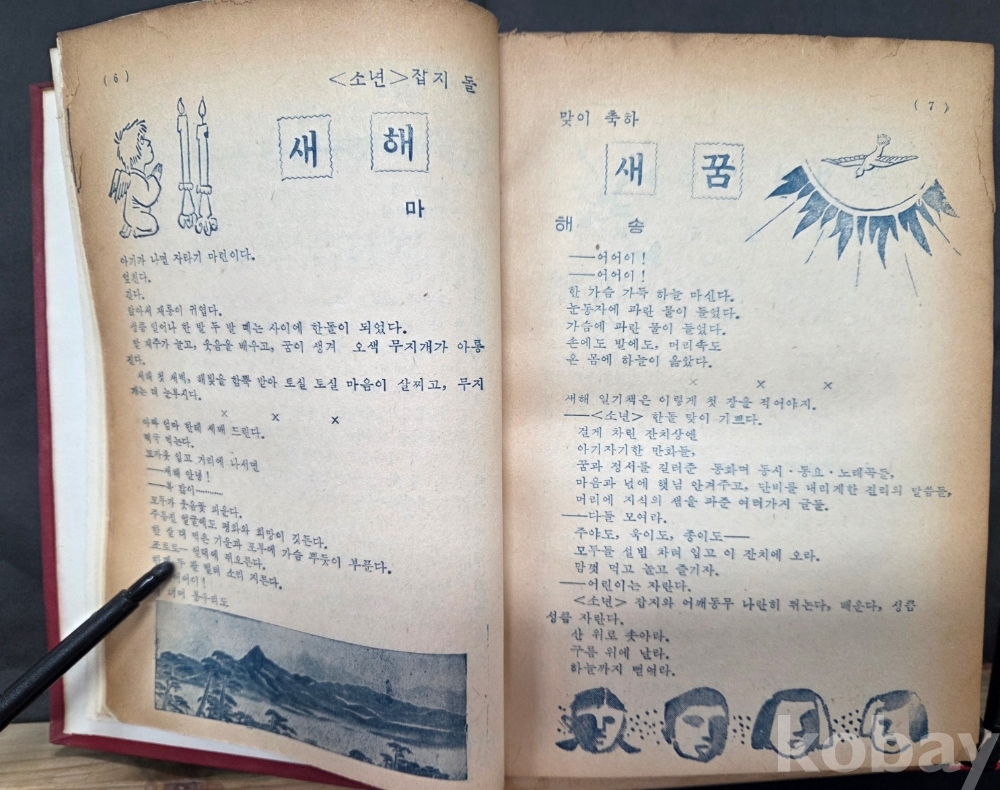 ( 6 )
<소년>잡지 돌
새 해
마
아기가 나면 자라기 마련이다.
걷는다.
앉아서 재롱이 귀엽다.
성큼 일어나 한 발 두 발 떼는 사이에 한돌이 되었다.
말 재주가 늘고, 웃음을 배우고, 꿈이 생겨 오색 무지개가 아롱
진다.
새해 첫 새벽, 햇빛을 함뿍 받아 토실 토실 마음이 살찌고, 무지
개는 더 눈부시다.
× × ×
아빠 엄마 한테 세배 드린다.
떡국 먹는다.
꼬까옷 입고 거리에 나서면
——새해 안녕!
——복 많이………
모두가 웃음꽃 피운다.
주름진 얼굴에도 평화와 희망이 깃든다.
한 살 더 먹은 기운과 포부에 가슴 뿌듯이 부푼다.
언덕에 뛰오른다.
두 팔 벌려 소리 지른다.
어어이!
( 7 )
맞이 축하
새 꿈
해 송
——어어이!
——어어이!
한 가슴 가득 하늘 마신다.
눈동자에 파란 물이 들었다.
가슴에 파란 물이 들었다.
손에도 발에도, 머리속도
온 몸에 하늘이 옮았다.
× × ×
새해 일기책은 이렇게 첫 장을 적어야지.
——<소년> 한돌 맞이 기쁘다.
걸게 차린 잔치상엔
아기자기한 만화들,
꿈과 정서를 길러준 동화며 동시·동요·노래곡들,
마음과 넋에 햇님 안겨주고, 단비를 내리게한 진리의 말씀들,
머리에 지식의 샘을 파준 여러가지 글들.
——다들 모여라.
주야도, 욱이도, 종이도——
모두들 설빔 차려 입고 이 잔치에 오라.
맘껏 먹고 놀고 즐기자.
——어린이는 자란다.
<소년> 잡지와 어깨동무 나란히 뛰는다, 배운다, 성큼
성큼 자란다.
산 위로 솟아라.
구름 위에 날라.
하늘까지 뻗어라.
kobay